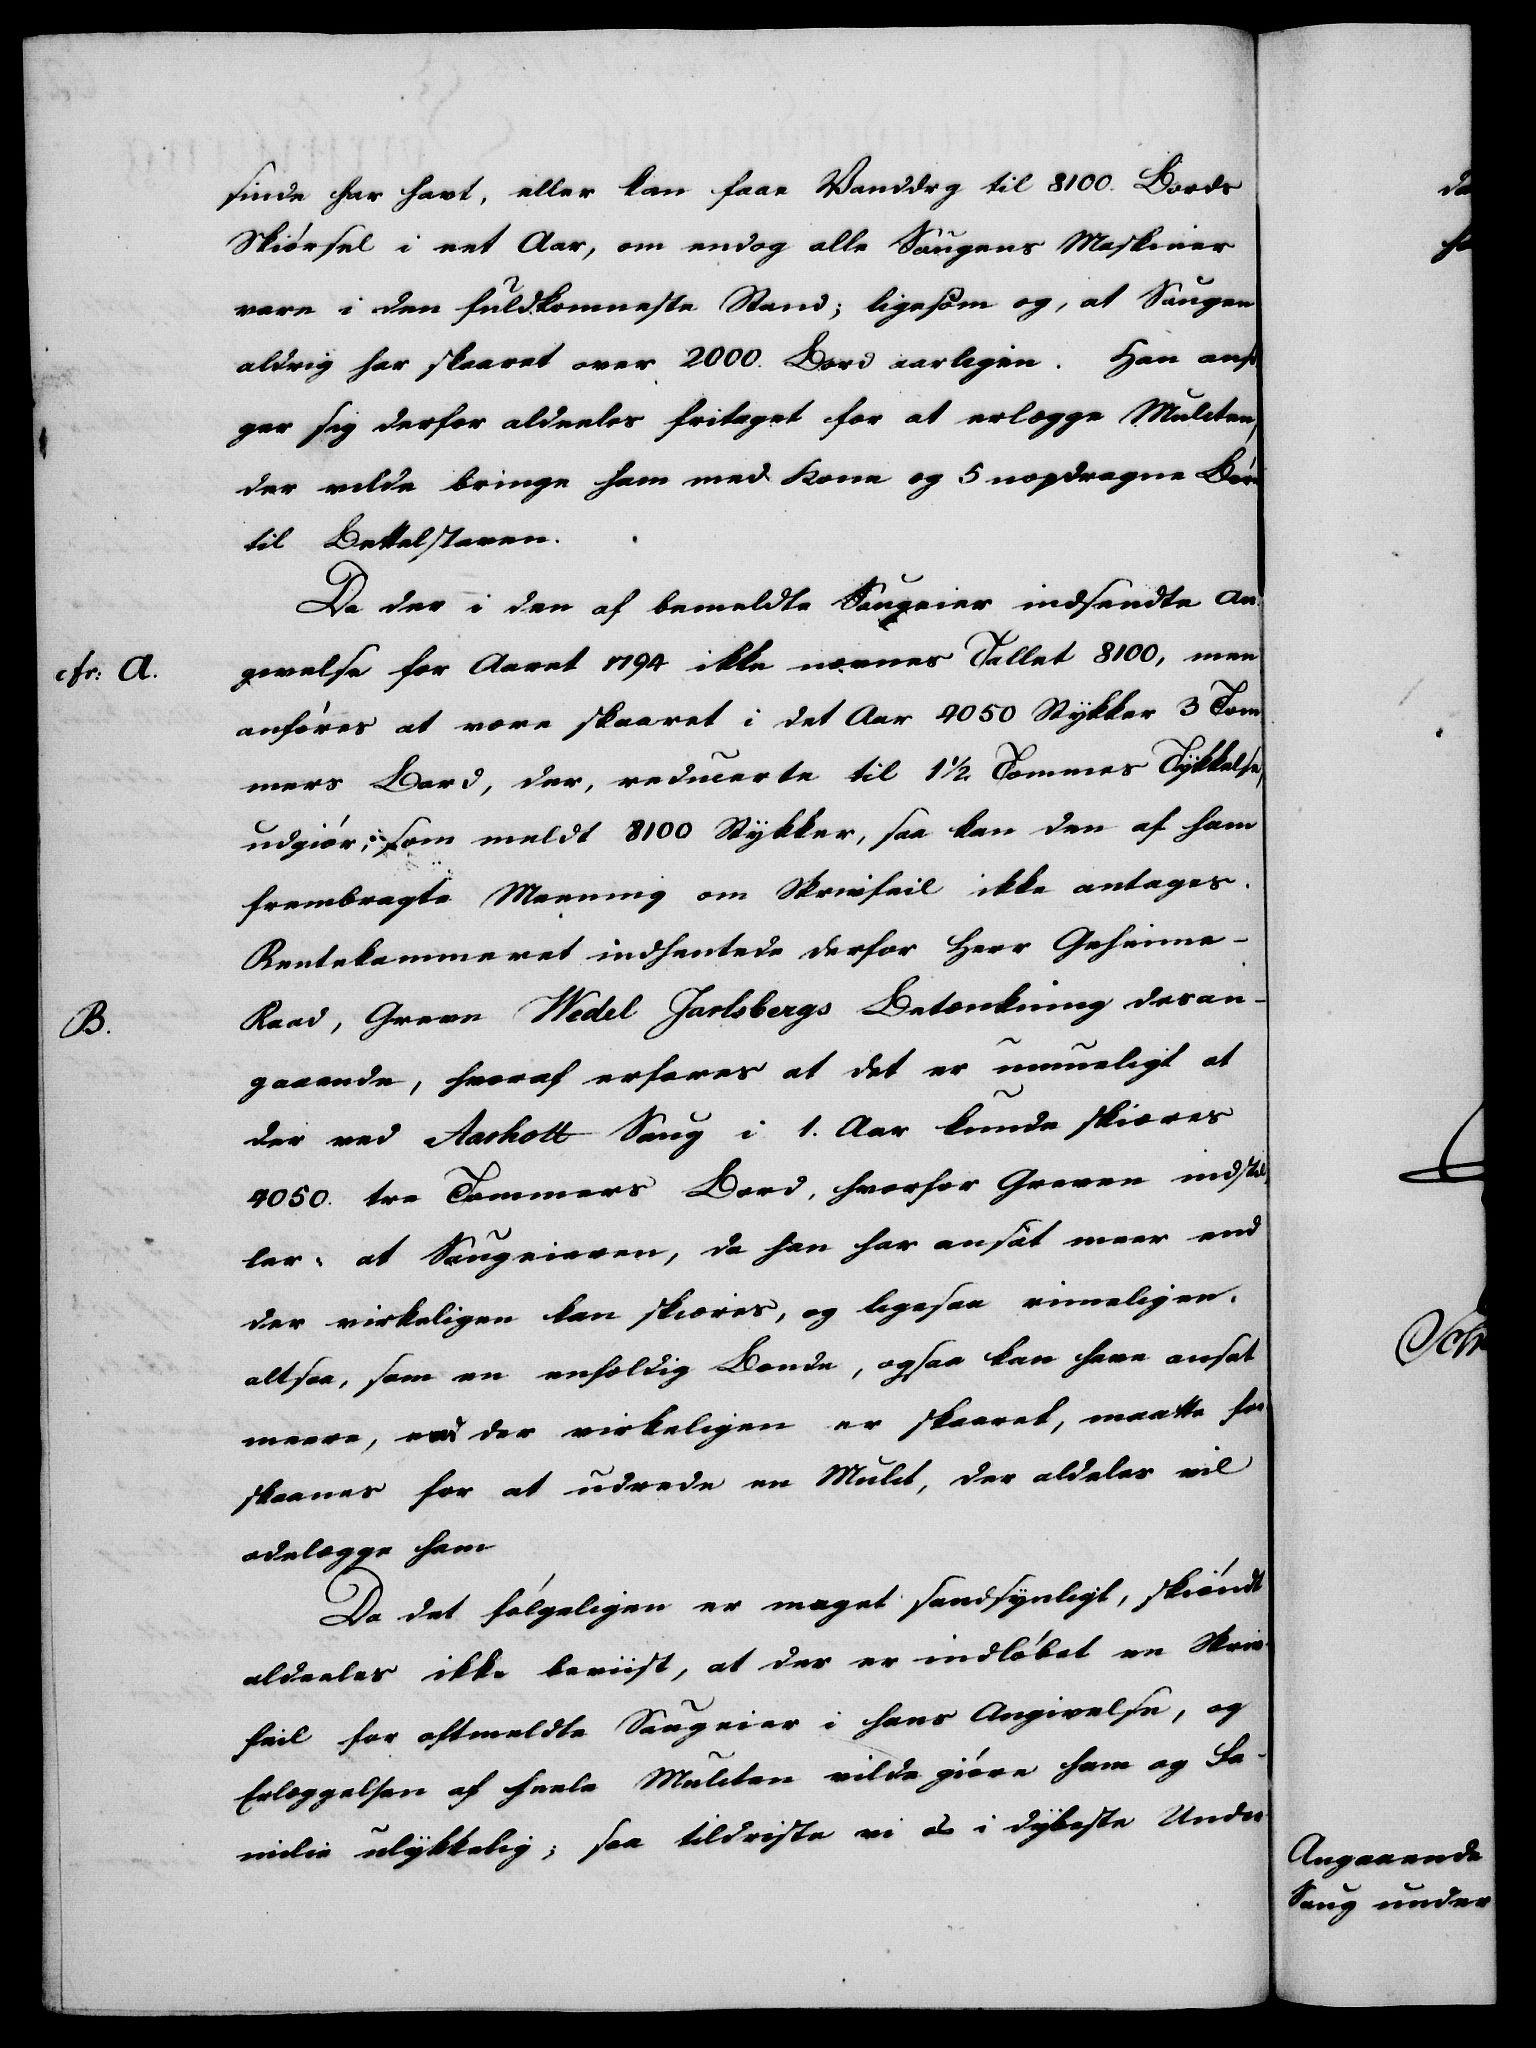 sinde har havt, eller kan faae Vanddrg til 8100. Bords
Skiørsel i eet Aar, om endog alle Saugens Maskiner
vare i den fuldkomneste Stand; ligesom og, at Saugen
aldrig har skaaret over 2000. Bord aarligen. Han ansø
ger sig derfor aldeeles fritaget for at erlægge Mulcten,
der vilde bringe ham med Kone og 5 uopdragne Børn
til Bettelstaven.
Da der i den af bemeldte Saugeier indsendte An
cfr: A. givelse for Aaret 1794 ikke nævnes Tallet 8100, men
anføres at være skaaret i det Aar 4050 Stykker 3 Tom
mers Bord, der, reducerte til 1 1/2 Tommes Tykkelse,
udgiør, som meldt 8100 Stykker, saa kan den af ham
frembragte Meening om Skrivfeil ikke antages.
Rentekammeret indhentede derfor Herr Geheime-
B. Raad, Greve Wedel Jarlsbergs Betænkning desan-
gaaende, hvoraf erfares at det er umueligt at
der ved Aasholt Saug i 1. Aar kunde skiæres
4050. tre Tommers Bord, hvorfor Greven indstil
ler, at Saugeieren, da han har ansat meer end
der virkeligen kan skæres, og ligesaa rimeligen,
altsaa, som en enfoldig Bonde, ogsaa kan have ansat
meere, end der virkeligen er skaaret, maatte for
skaanes for at udrede en Mulct, der aldeles vil
ødelægge ham
Da det følgeligen er meget sandsynligt, skiøndt
aldeeles ikke beviist, at der er indløbet en Skriv
feil for oftmeldte Saugeier i hans Angivelse, og
Erlæggelsen af heele Mulcten vilde giøre ham og Fa-
milie ulykkelig; saa tildriste vi os i dybeste Under
Angaaende
Saug under